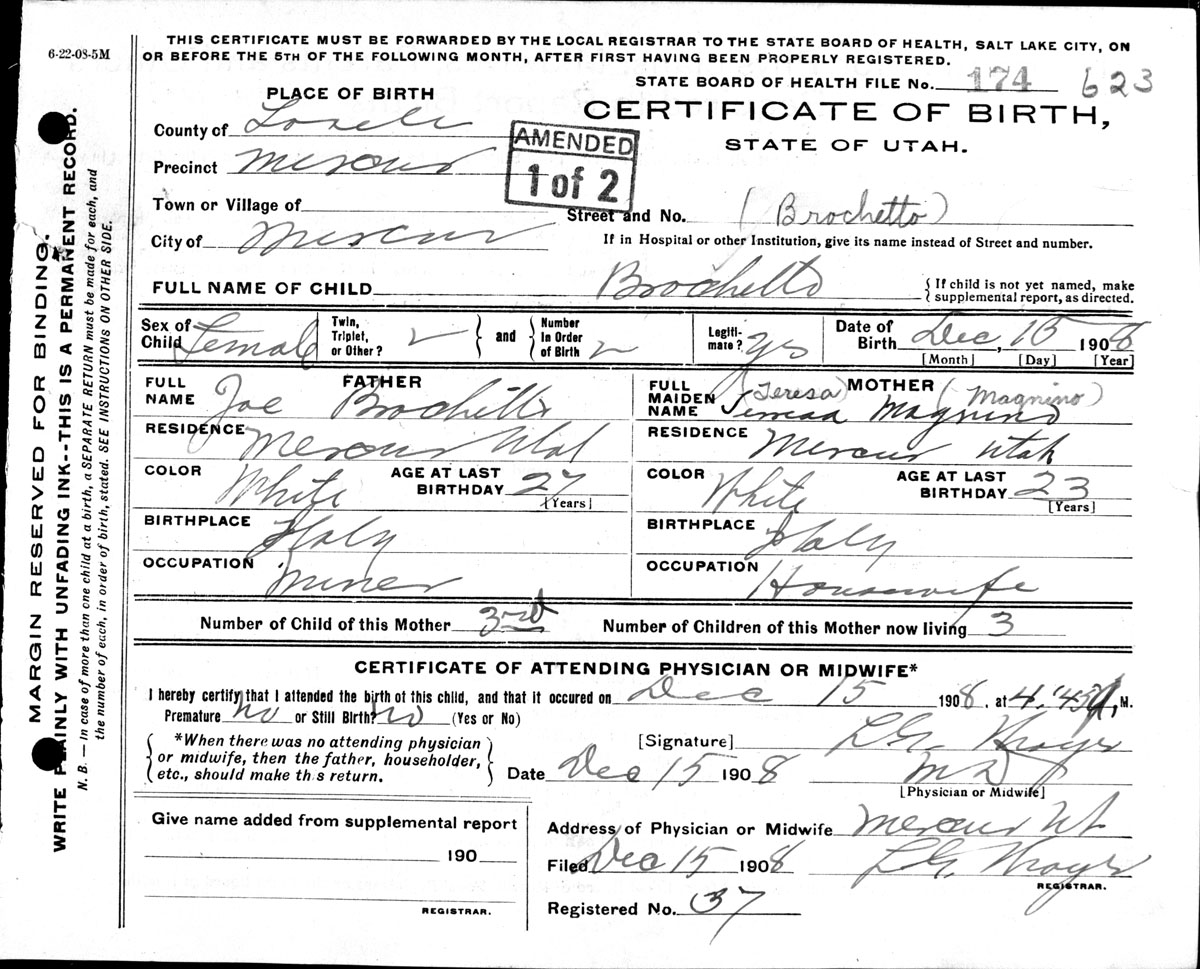 6-22-08-5M
THIS CERTIFICATE MUST BE FORWARDED BY THE LOCAL REGISTRAR TO THE STATE BOARD OF HEALTH, SALT LAKE CITY, ON
OR BEFORE THE 5TH OF THE FOLLOWING MONTH, AFTER FIRST HAVING BEEN PROPERLY REGISTERED.
STATE BOARD OF HEALTH FILE No. 174 623
PLACE OF BIRTH
CERTIFICATE OF BIRTH,
STATE OF UTAH.
County of
AMENDED
1 of 2
Precinct Mercur
Town or Village of
Street and No. (Brochetto)
City of Mercur
If in Hospital or other Institution, give its name instead of Street and number.
FULL NAME OF CHILD Brochetto
{ If child is not yet named, make
supplemental report, as directed.
Sex of Child Female
Twin, Triplet, or Other? 2 } and { Number in Order of Birth 2
Legitimate? yes
Date of Birth Dec, 15 1908
[Month] [Day] [Year]
FULL NAME FATHER Joe Brochetto
FULL MAIDEN NAME MOTHER (Teresa) (Magnino)
Magnino
RESIDENCE Mercur Utah
RESIDENCE Mercur Utah
COLOR White AGE AT LAST BIRTHDAY 27 [Years]
COLOR White AGE AT LAST BIRTHDAY 23 [Years]
BIRTHPLACE Italy
BIRTHPLACE Italy
OCCUPATION Miner
OCCUPATION Housewife
Number of Child of this Mother 3rd Number of Children of this Mother now living 3
CERTIFICATE OF ATTENDING PHYSICIAN OR MIDWIFE*
I hereby certify that I attended the birth of this child, and that it occured on Dec 15 1908, at 4:45 M.
Premature no or Still Birth? no (Yes or No)
{ *When there was no attending physician
or midwife, then the father, householder,
etc., should make this return. }
[Signature]
Date Dec 15 1908 MD
[Physician or Midwife]
Give name added from supplemental report
190
REGISTRAR.
Address of Physician or Midwife Mercur Ut
Filed Dec 15 1908
REGISTRAR.
Registered No. 37
MARGIN RESERVED FOR BINDING.
WRITE PLAINLY WITH UNFADING INK--THIS IS A PERMANENT RECORD.
N. B.—In case of more than one child at a birth, a SEPARATE RETURN must be made for each, and
the number of each, in order of birth, stated. SEE INSTRUCTIONS ON OTHER SIDE.